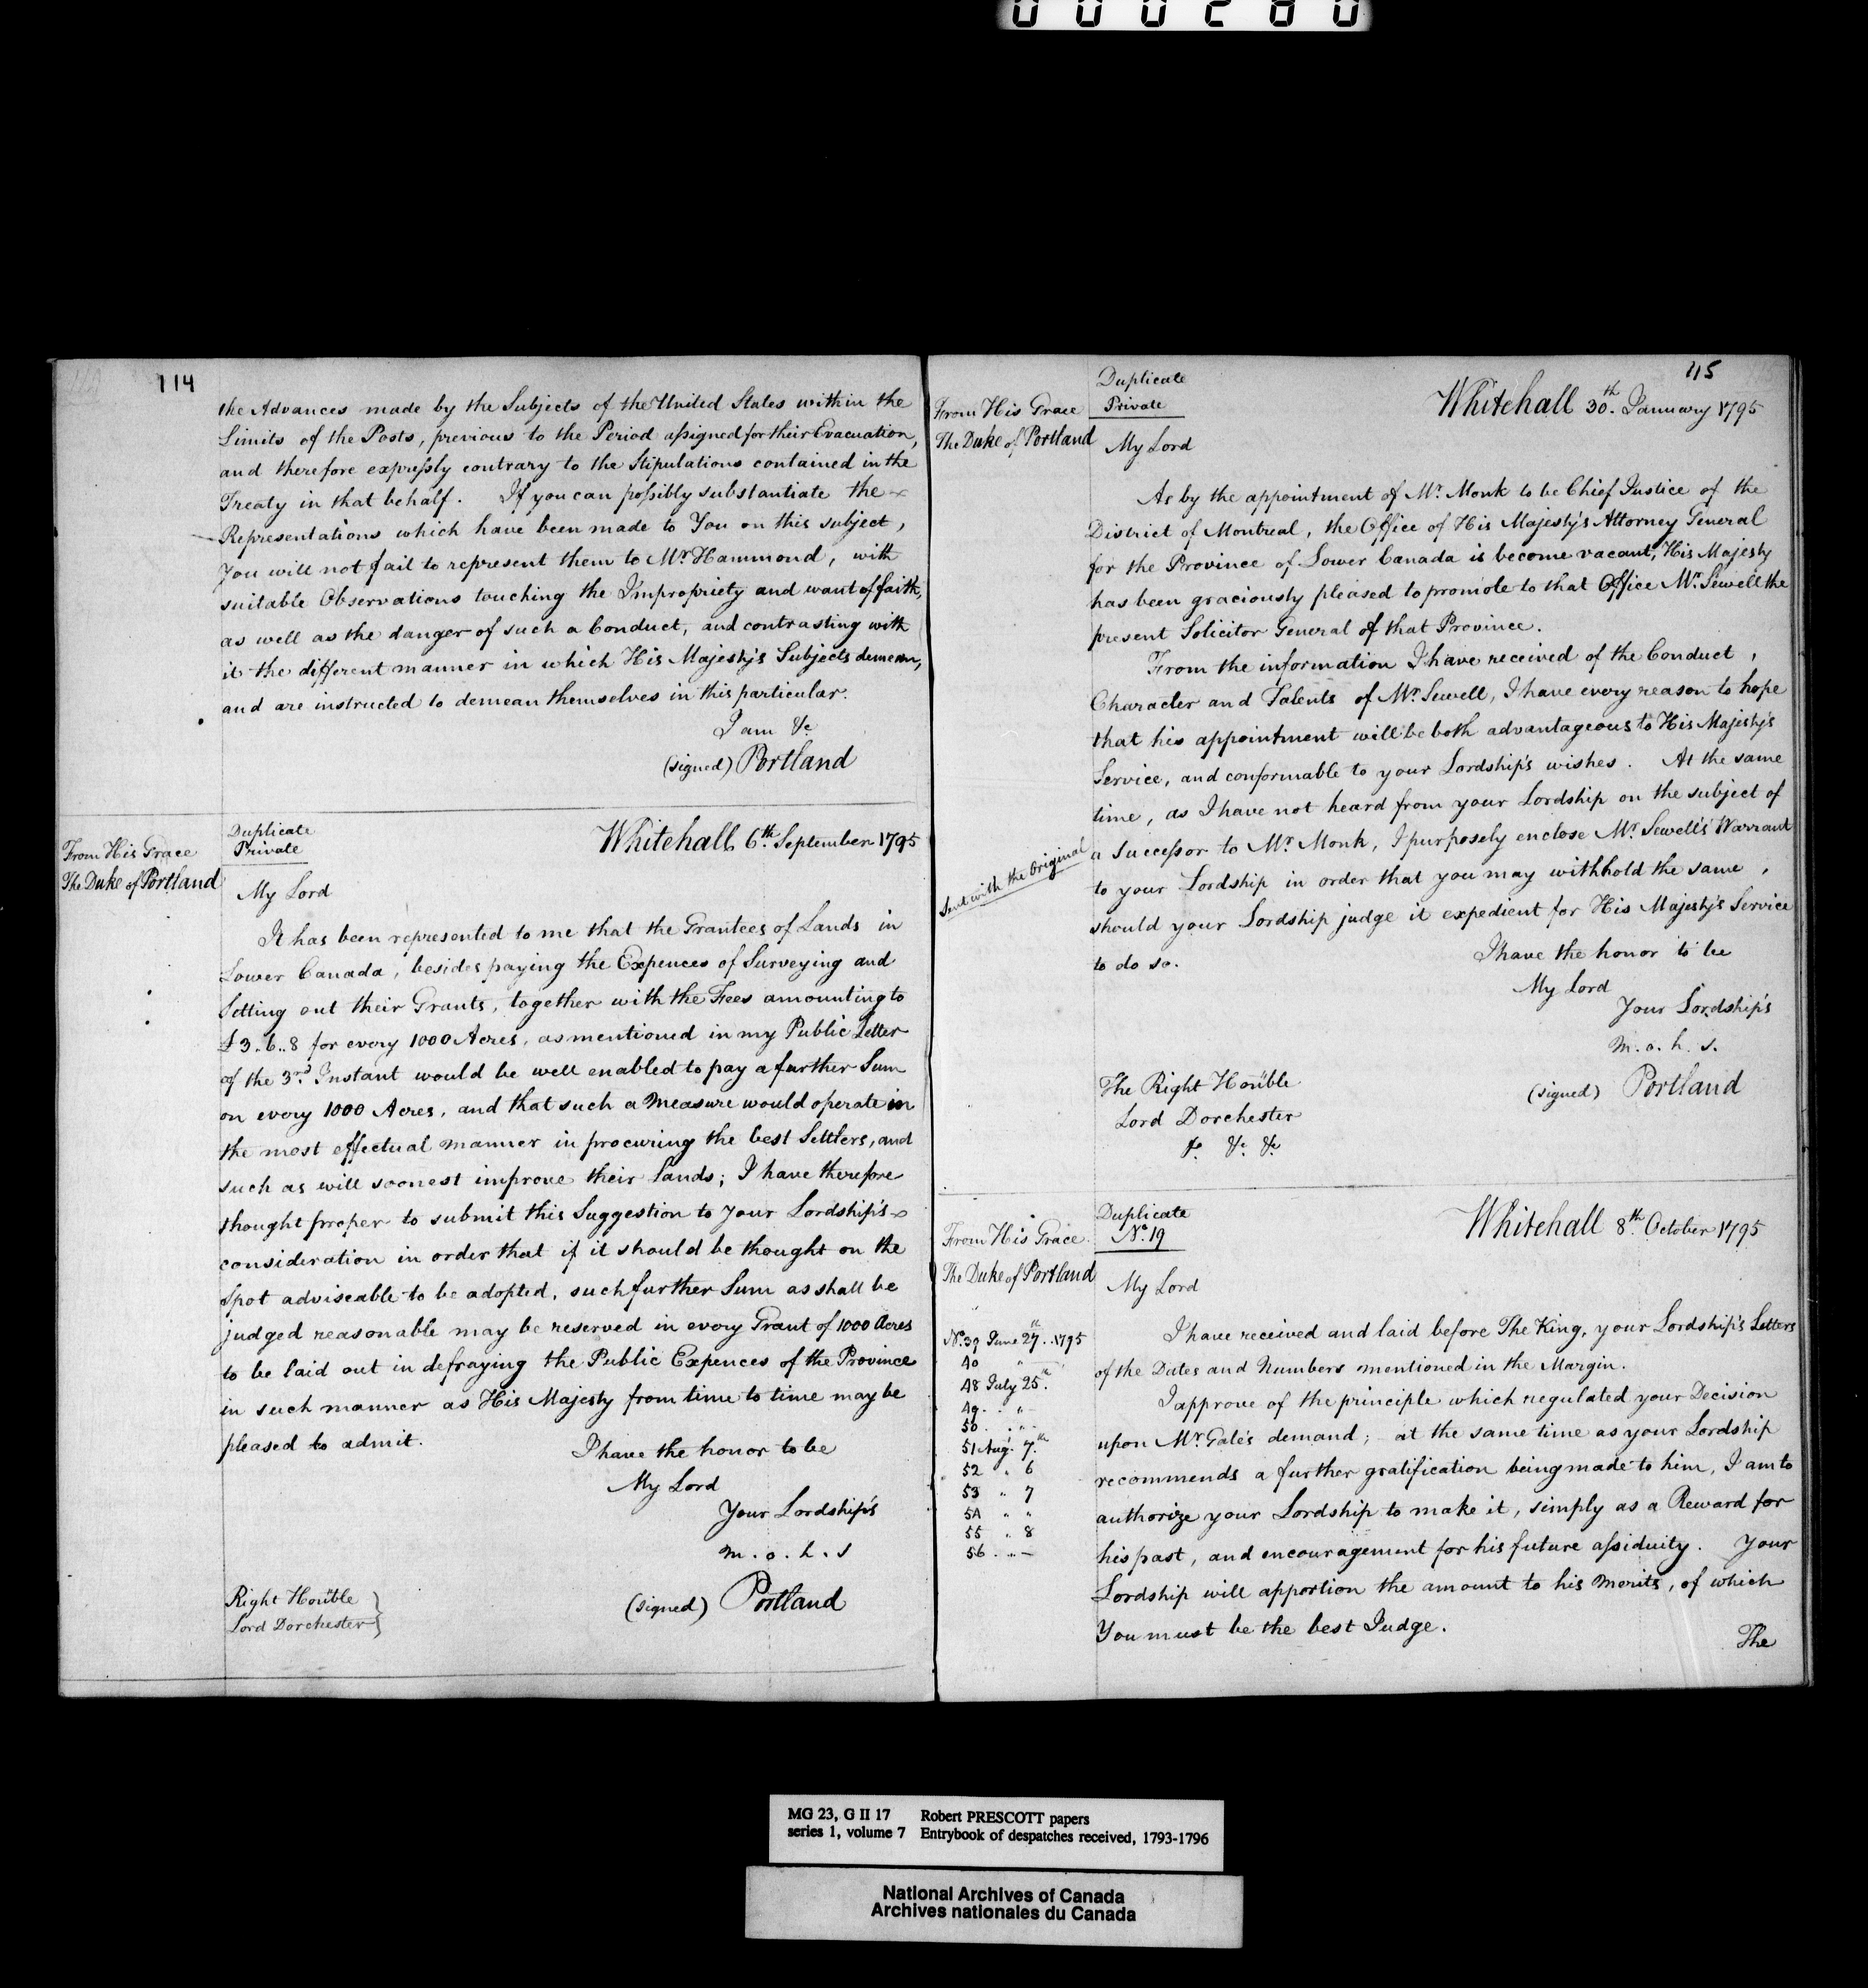 000280
114
the Advances made by the Subjects of the United States within the
Limits of the Posts, previous to the Period assigned for their Evacuation,
and therefore expressly contrary to the Stipulations contained in the
Treaty in that behalf. If you can possibly substantiate the
Representations which have been made to You on this subject,
you will not fail to represent them to Mr. Hammond, with
suitable Observations touching the Impropriety and want of faith,
as well as the danger of such a Conduct, and contrasting with
it the different manner in which His Majesty's Subjects demean,
and are instructed to demean themselves in this particular.
I am &c
(signed) Portland
From His Grace
The Duke of Portland
Duplicate
Private
Whitehall 6th September 1795
My Lord
It has been represented to me that the Grantees of Lands in
Lower Canada, besides paying the Expences of Surveying and
Setting out their Grants, together with the Fees amounting to
£3..6..8 for every 1000 Acres, as mentioned in my Public Letter
of the 3rd Instant would be well enabled to pay a further Sum
on every 1000 Acres, and that such a Measure would operate in
the most effectual manner in procuring the best Settlers, and
such as will soonest improve their Lands; I have therefore
thought proper to submit this Suggestion to Your Lordship's
consideration in order that if it should be thought on the
Spot adviseable to be adopted, such further Sum as shall be
judged reasonable may be reserved in every Grant of 1000 Acres
to be laid out in defraying the Public Expences of the Province
in such manner as His Majesty from time to time may be
pleased to admit.
I have the honor to be
My Lord
Your Lordship's
m. o. h. s
(signed) Portland
Right Honble
Lord Dorchester }
115
From His Grace
The Duke of Portland
Duplicate
Private
Whitehall 30th January 1795
My Lord
As by the appointment of Mr. Monk to be Chief Justice of the
District of Montreal, the Office of His Majesty's Attorney General
for the Province of Lower Canada is become vacant, His Majesty
has been graciously pleased to promote to that Office Mr. Sewell the
present Solicitor General of that Province.
From the information I have received of the Conduct,
Character and Talents of Mr. Sewell, I have every reason to hope
that his appointment will be both advantageous to His Majesty's
Service, and conformable to your Lordship's wishes. At the same
time, as I have not heard from your Lordship on the subject of
a Successor to Mr. Monk, I purposely enclose Mr. Sewell's Warrant
Sent with the Original
to your Lordship in order that you may withhold the same,
should your Lordship judge it expedient for His Majesty's Service
to do so.
I have the honor to be
My Lord
Your Lordship's
m. o. h. s.
(signed) Portland
The Right Honble
Lord Dorchester
&c &c &c
From His Grace
The Duke of Portland
Duplicate
No. 19
Whitehall 8th October 1795
My Lord
I have received and laid before The King, your Lordship's Letters
of the Dates and Numbers mentioned in the Margin.
No. 39 June 27th 1795
40 " —
48 July 25th
49 . " —
50 . " -
51 Aug. 7th
52 " 6
53 " 7
54 " "
55 " 8
56 . " —
I approve of the principle which regulated your Decision
upon Mr. Gale's demand; at the same time as your Lordship
recommends a further gratification being made to him, I am to
authorize your Lordship to make it, simply as a Reward for
his past, and encouragement for his future assiduity. Your
Lordship will apportion the amount to his Merits, of which
You must be the best Judge.
The
MG 23, G II 17 Robert PRESCOTT papers
series 1, volume 7 Entrybook of despatches received, 1793-1796
National Archives of Canada
Archives nationales du Canada